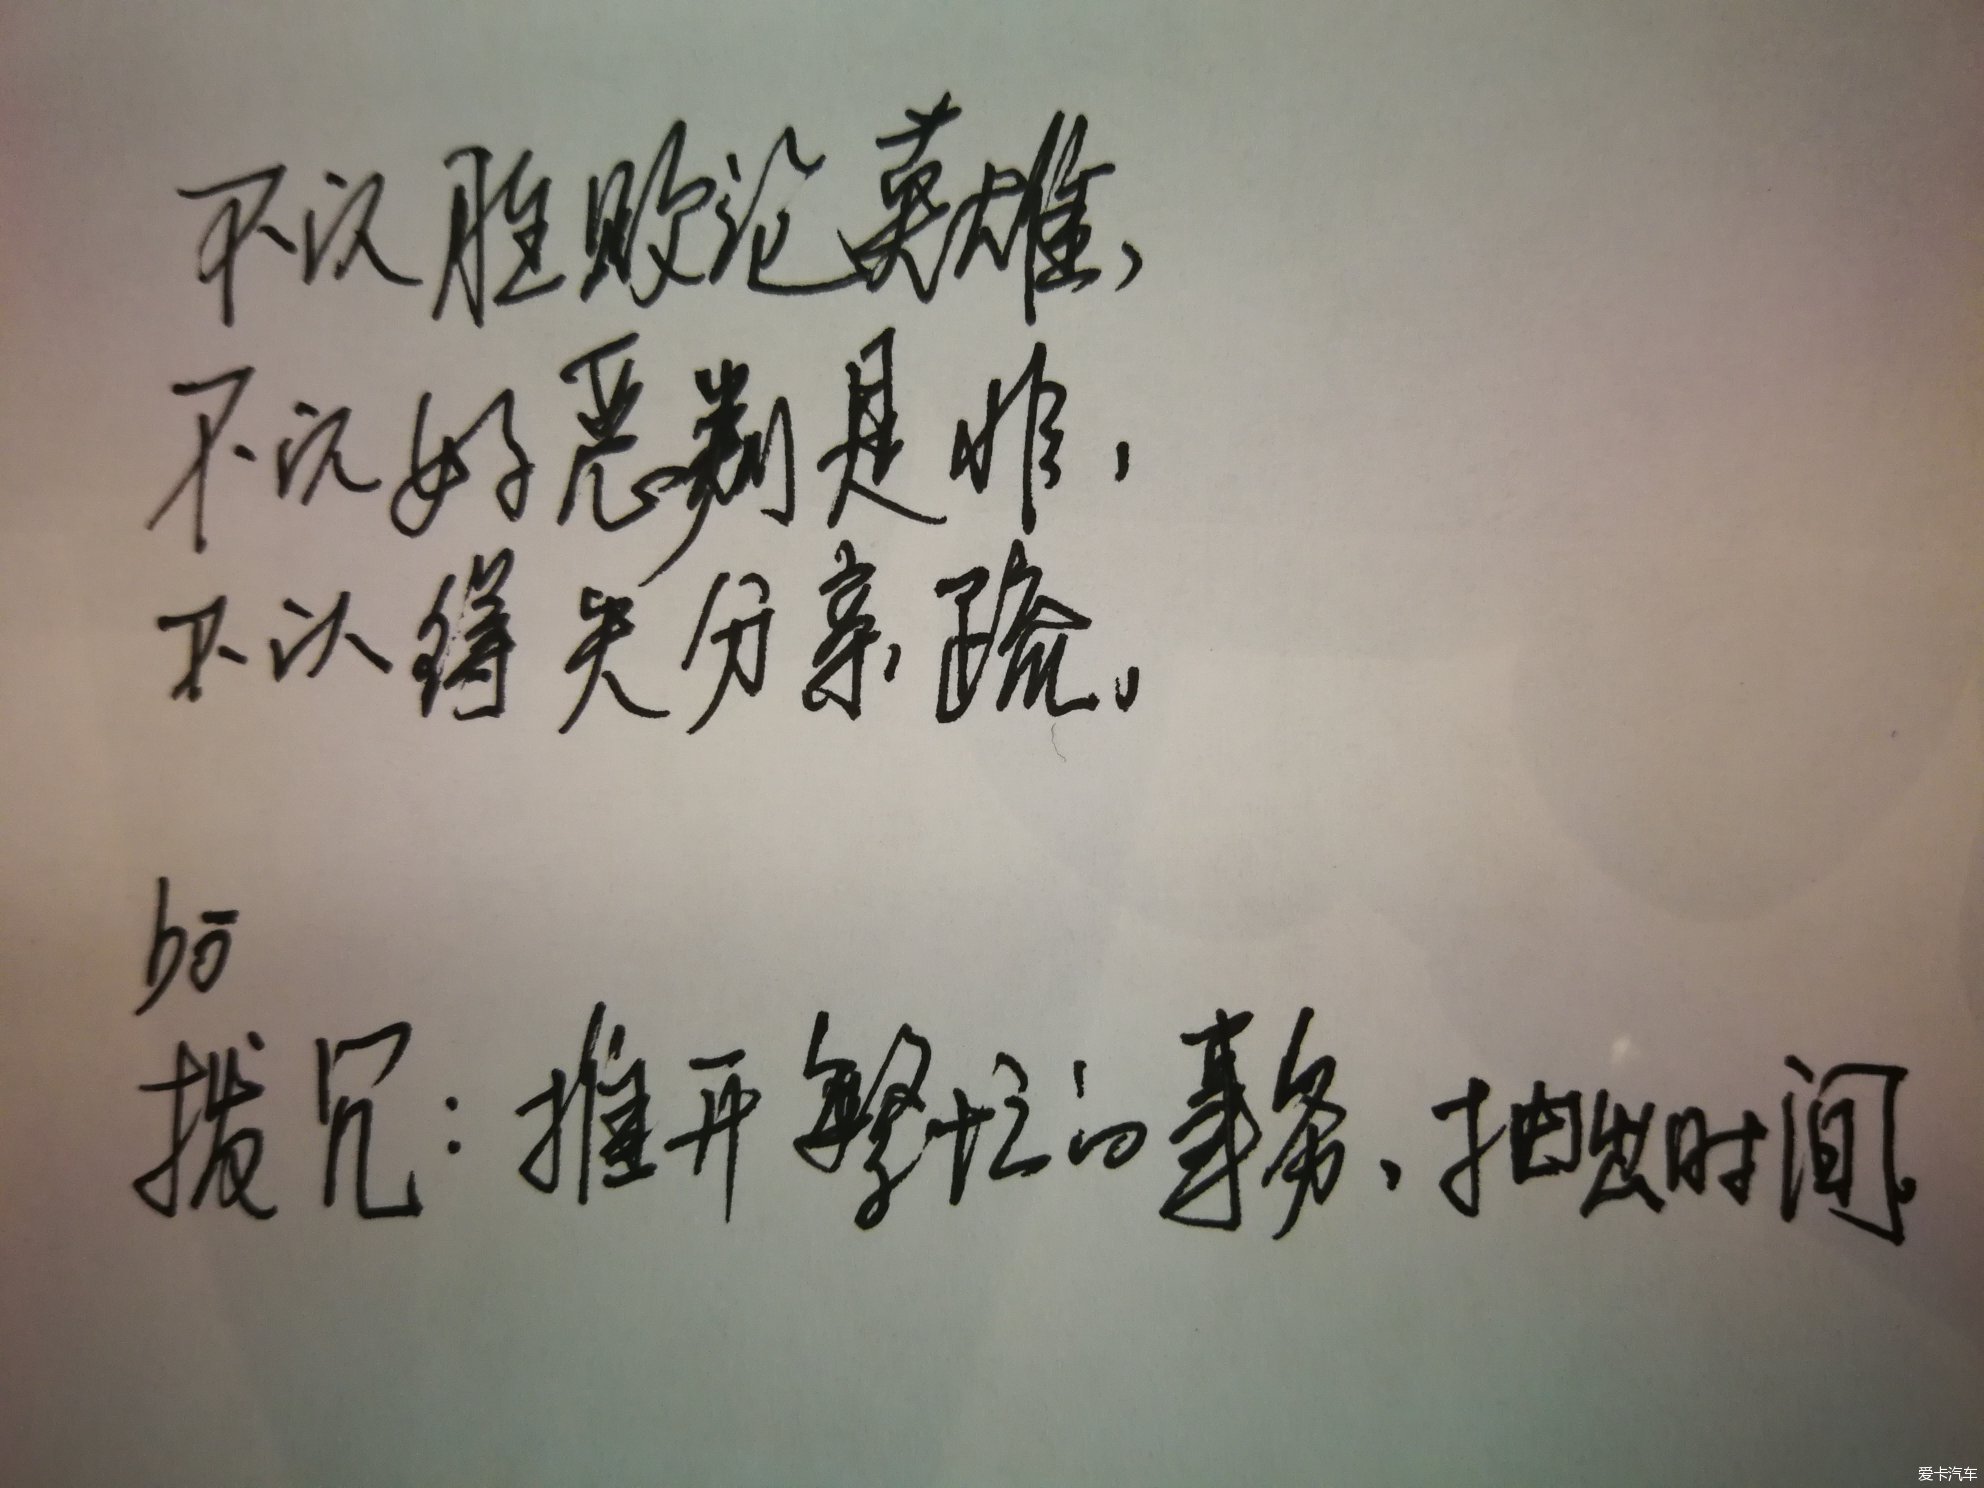 不以胜败论英雄，
不以好恶判是非，
不以得失分亲疏。
bō
拨冗：推开繁忙的事务，抽出时间。
爱卡汽车